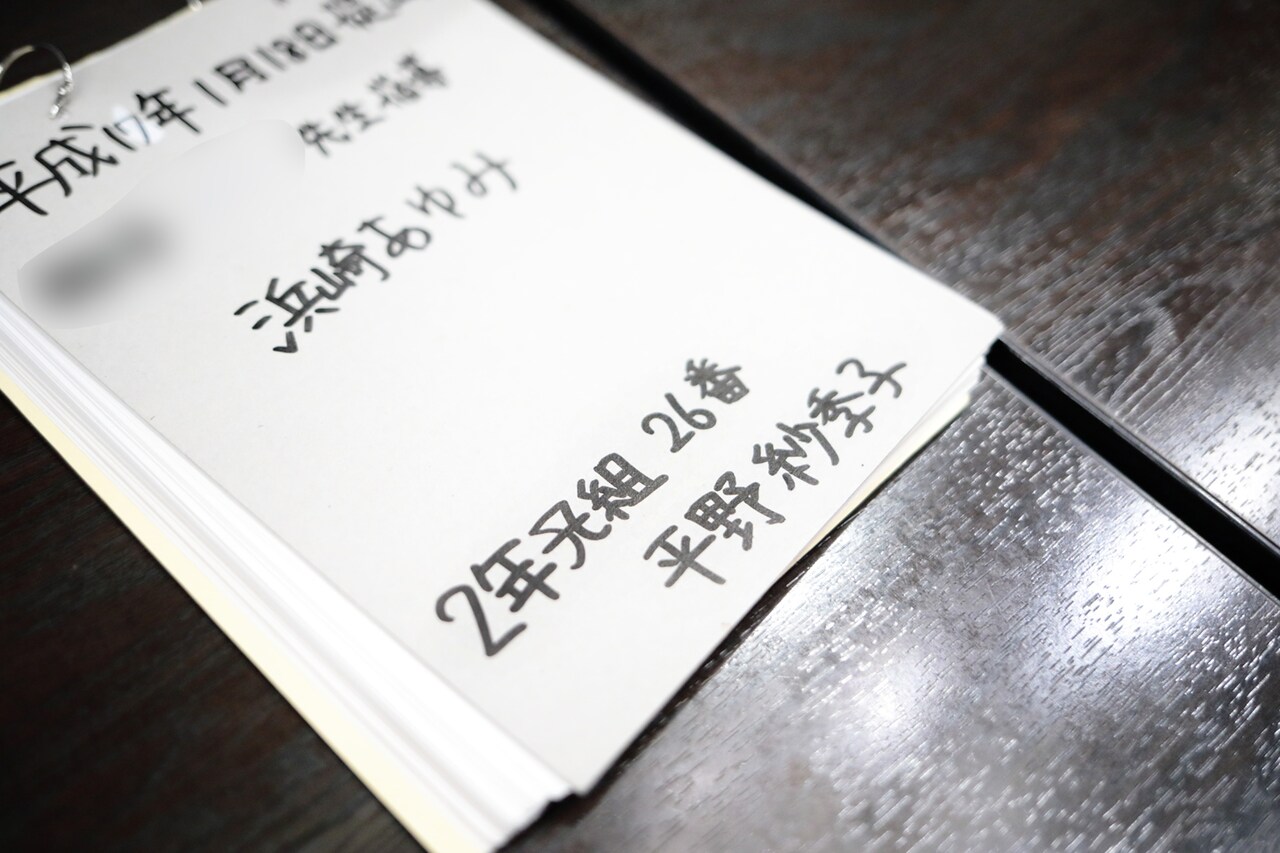 平成17年1月18日
先生指導
浜崎あゆみ
2年光組 26番
平野 紗季子